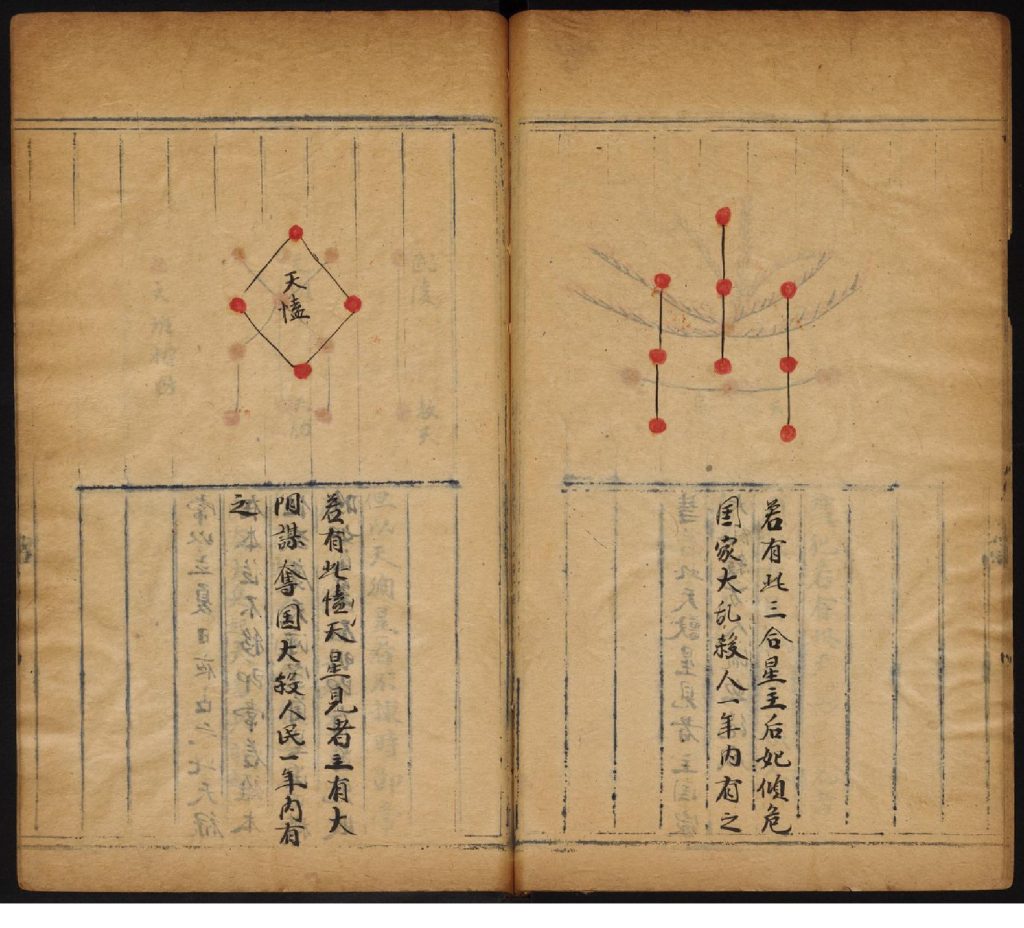 若有此三合星主后妃傾危
国家大乱殺人一年内有之
天
若有此天星見者主有大
阴謀奪国大殺人民一年内有
之